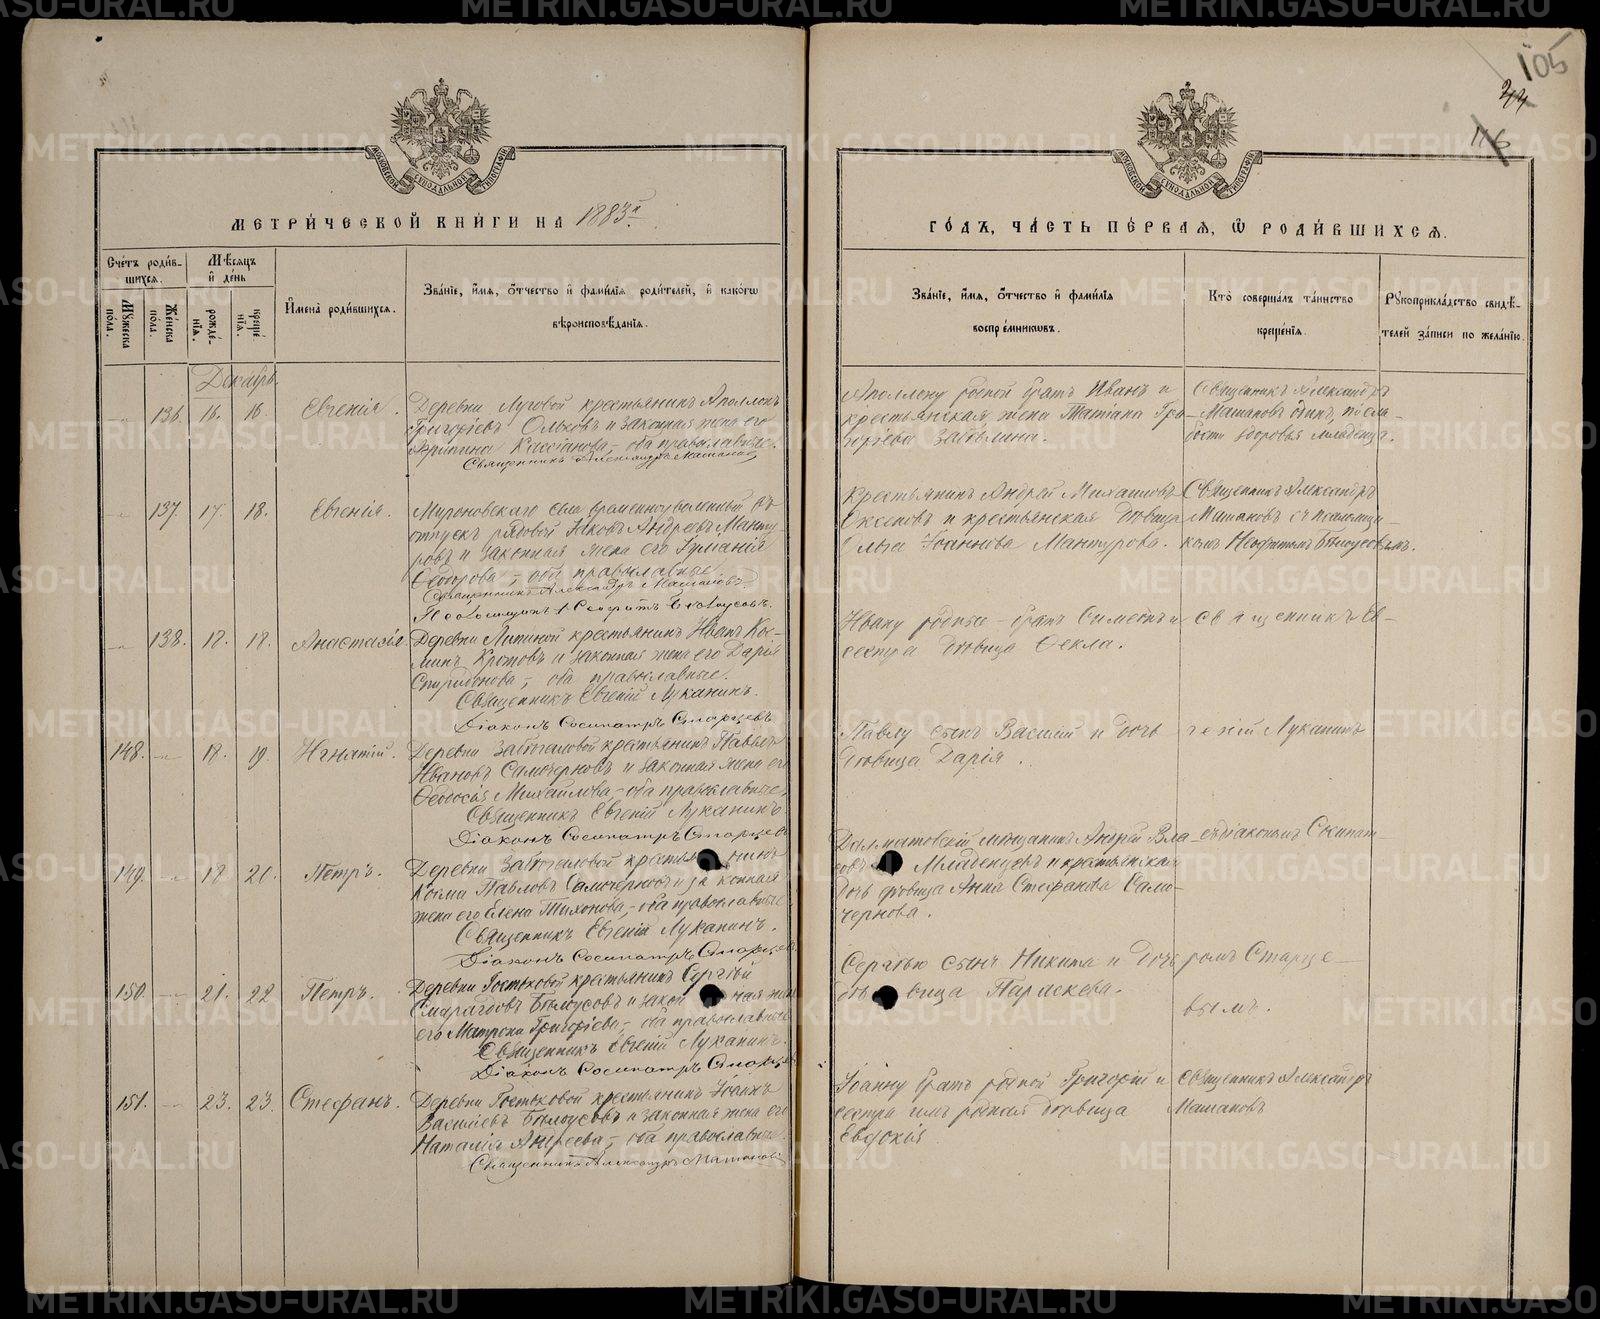 METRIKI.GASO-URAL.RU
105
44
116
МОСКОВСКОЙ СѴНОДАЛЬНОЙ ТИПОГРАФІИ
МЕТРИ́ЧЕСКОЙ КНИ́ГИ НА 1883й
ГО́ДЪ, ЧА́СТЬ ПЕ́РВАѦ, Ѽ РОДИ́ВШИХСѦ.
Сче́тъ роди́в-
шихсѧ.
Мꙋ́жеска по́ла.
Же́нска по́ла.
Мѣ́сѧцъ и҆ де́нь
рожде́-
нїѧ.
креще́
нїѧ.
И҆мена̀ роди́вшихсѧ.
Зва́нїе, и҆́мѧ, ѻ҆́тчество и҆ фами́лїѧ роди́телей, и҆ како́гѡ
вѣроисповѣ́данїѧ.
Зва́нїе, и҆́мѧ, ѻ҆́тчество и҆ фами́лїѧ
воспрїе́мникѡвъ.
Кто̀ соверша́лъ та́инство
креще́нїѧ.
Рꙋкоприкла́дство свидѣ́-
телей за́писи по жела́нїю.
Декабрь
136. 16. 16. Евгенія.
Деревни Луговой крестьянинъ Аполлонъ
Григоріевъ и законная жена его
Агрипина Кассіанова, оба православные.
Священникъ Александръ Машановъ
Аполлону родной братъ Иванъ и
крестьянская жена Татіана Гри-
горьева
Священникъ Александръ
Машановъ одинъ, по сла-
бости здоровья младенца.
137. 17. 18. Евгенія.
Мироновскаго села временноуволенный въ
отпускъ рядовой Іаковъ Андреевъ Манту-
ровъ и законная жена его
Ѳеодорова, оба православные.
Священникъ Александръ Машановъ
Псаломщикъ Неофитъ Бѣлоусовъ.
Крестьянинъ Андрей Михаиловъ
и крестьянская дѣвица
Ольга Іоаннова Мантурова.
Священникъ Александръ
Машановъ съ псаломщи-
комъ Неофитомъ Бѣлоусовымъ.
138. 18. 18. Анастасія
Деревни Липиной крестьянинъ Иванъ Кос-
минъ Кротовъ и законная жена его Дарія
Спиридонова, оба православные.
Священникъ Евгеній Луканинъ.
Діаконъ Сосипатръ Старцевъ
Ивану родные братъ Симеонъ и
сестра дѣвица Ѳекла.
Священникъ Ев-
148. 18. 19. Игнатій.
Деревни крестьянинъ Павелъ
Ивановъ Самочерновъ и законная жена его
Ѳеодосія Михайлова, оба православные.
Священникъ Евгеній Луканинъ
Діаконъ Сосипатръ Старцевъ
Павлу сынъ Василій и дочь
дѣвица Дарія.
геній Луканинъ
149. 18. 20. Петръ.
Деревни крестьянинъ
Косма Павловъ Самочерновъ и законная
жена его Елена Тихонова, оба православные
Священникъ Евгеній Луканинъ.
Діаконъ Сосипатръ Старцевъ
Далматовскій мѣщанинъ Андрей Вла-
совъ Младенцовъ и крестьянская
дочь дѣвица Анна Стефанова Само-
чернова.
съ діакономъ Сосипат-
150. 21. 22 Петръ.
Деревни Гостьковой крестьянинъ Сергѣй
Смарагдовъ Бѣлоусовъ и законная жена
его Матрона Григоріева, оба православные
Священникъ Евгеній Луканинъ.
Діаконъ Сосипатръ Старцевъ
Сергѣю сынъ Никита и дочь
дѣвица Параскева.
ромъ Старце-
вымъ.
151. 23. 23. Стефанъ.
Деревни Гостьковой крестьянинъ Іоаннъ
Васильевъ Бѣлоусовъ и законная жена его
Наталія Андреева, оба православные.
Священникъ Александръ Машановъ
Іоанну братъ родной Григорій и
сестра имъ родная дѣвица
Евдокія
Священникъ Александръ
Машановъ